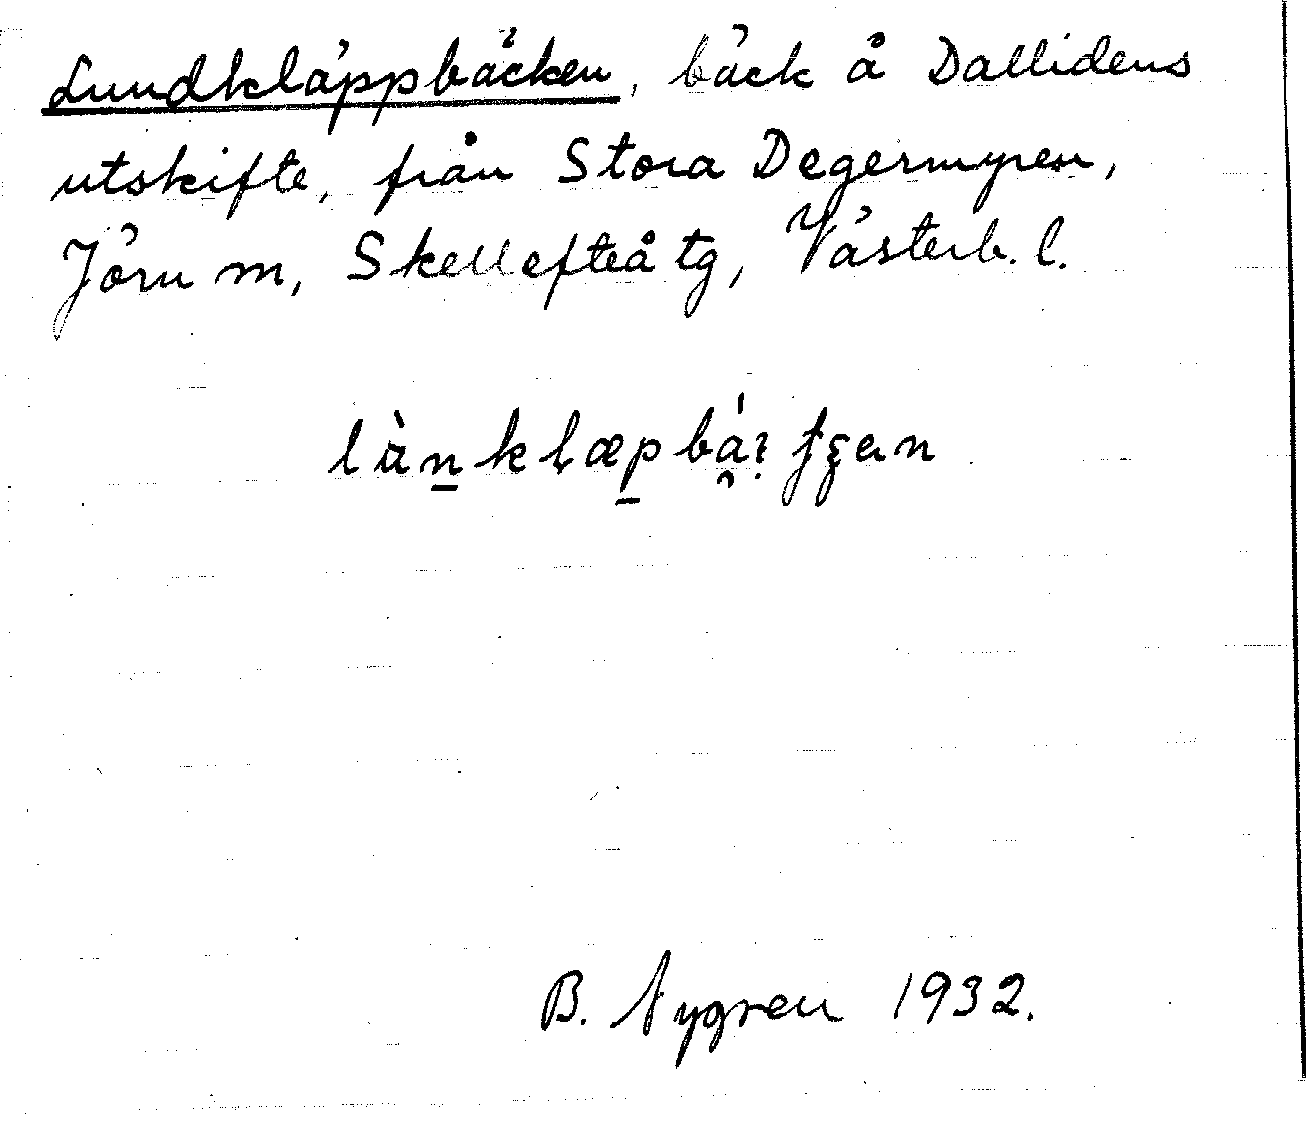 Lundkläppbäcken, bäck å Dallidens
utskifte, från Stora Degermyren,
Jörn m, Skellefteå tg, Västerb. l.
B. Nygren 1932.